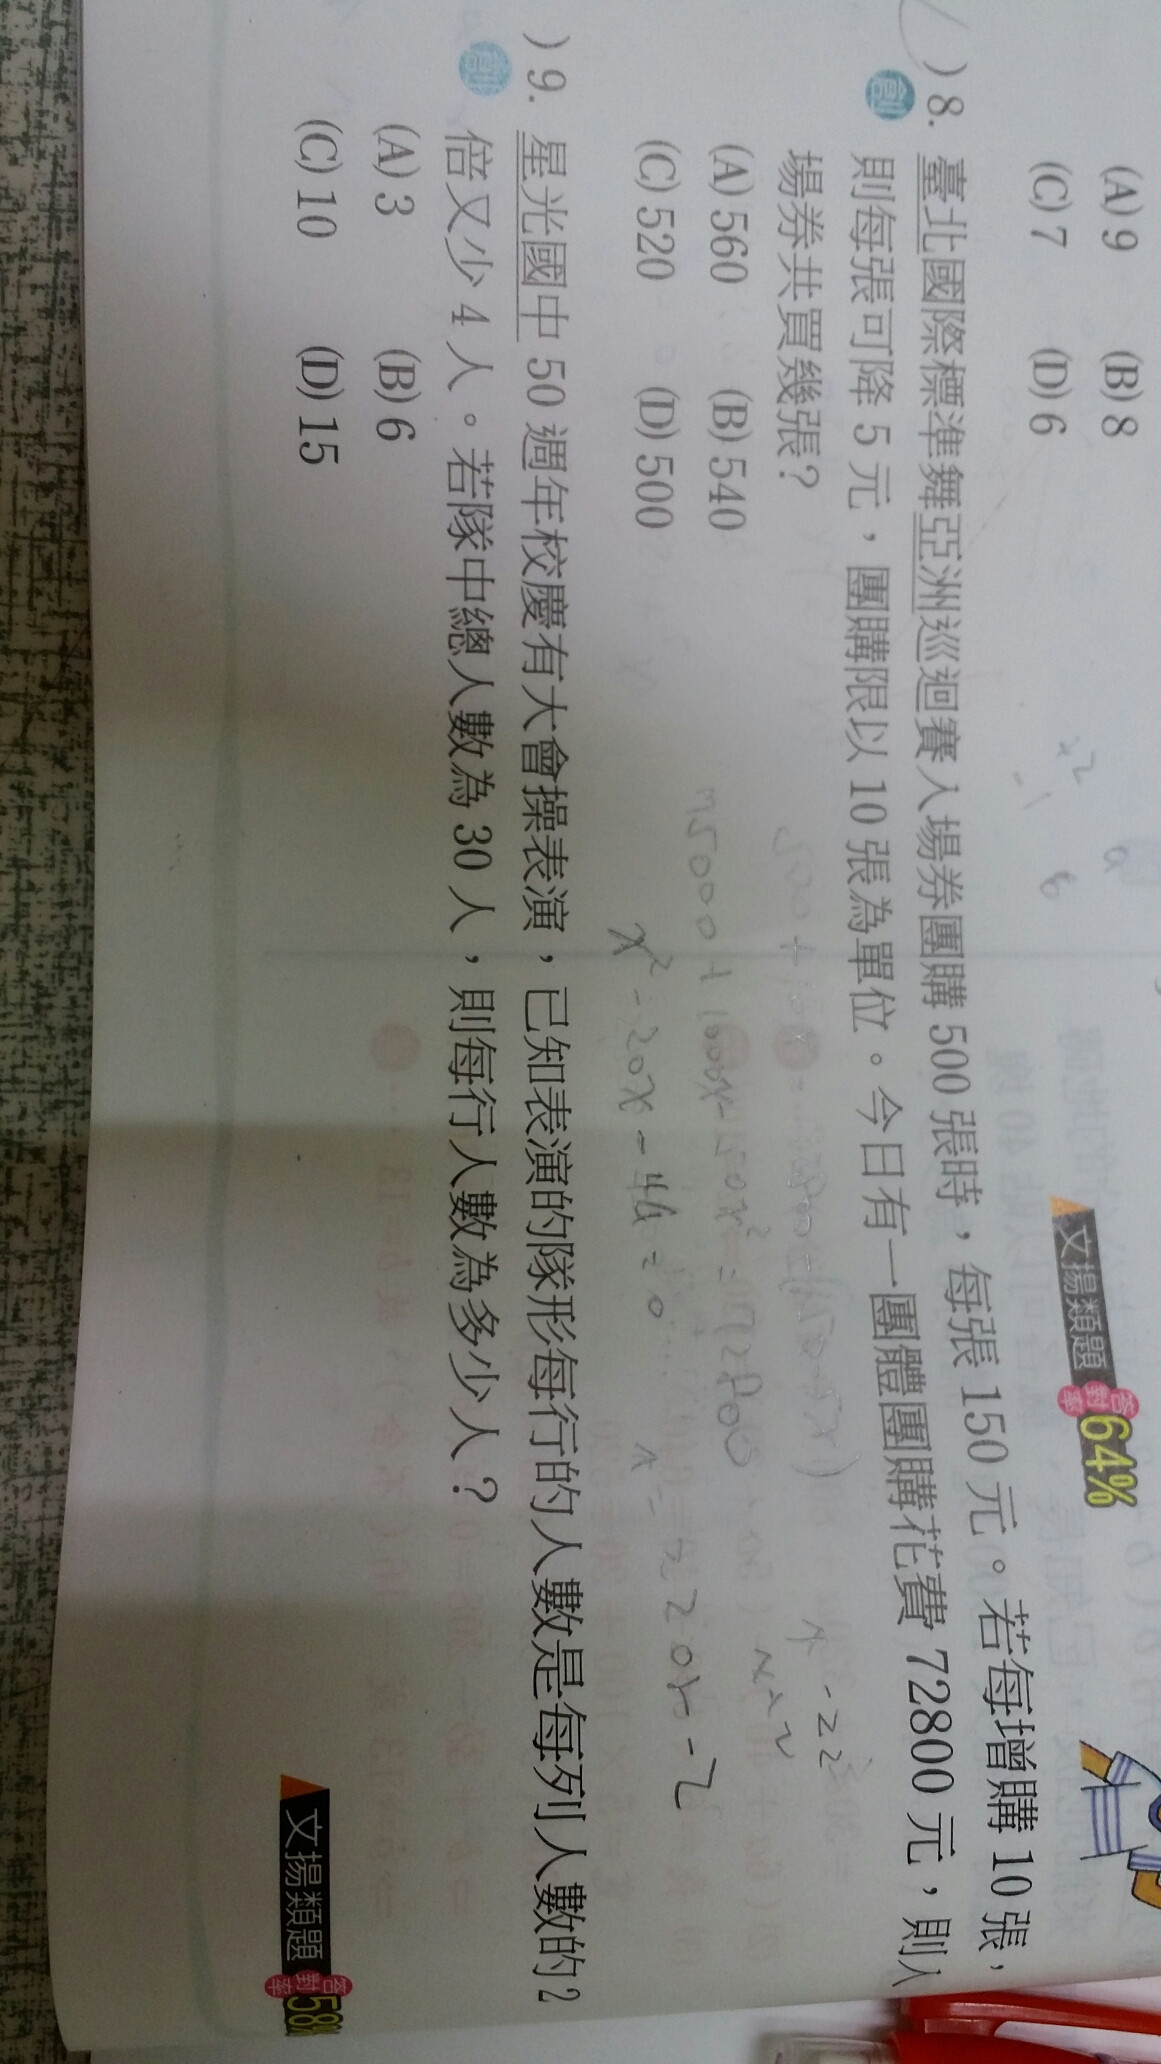 (A) 9 (B) 8
(C) 7 (D) 6
文揚類題 答對率 64%
) 8. 臺北國際標準舞亞洲巡迴賽入場券團購 500 張時，每張 150 元。若每增購 10 張，
創 則每張可降 5 元，團購限以 10 張為單位。今日有一團體團購花費 72800 元，則入
場券共買幾張？
(A) 560 (B) 540
(C) 520 (D) 500
x²-20x-44=0
x-22
x 2
) 9. 星光國中 50 週年校慶有大會操表演，已知表演的隊形每行的人數是每列人數的 2
創 倍又少 4 人。若隊中總人數為 30 人，則每行人數為多少人？
(A) 3 (B) 6
(C) 10 (D) 15
文揚類題 答對率 58%